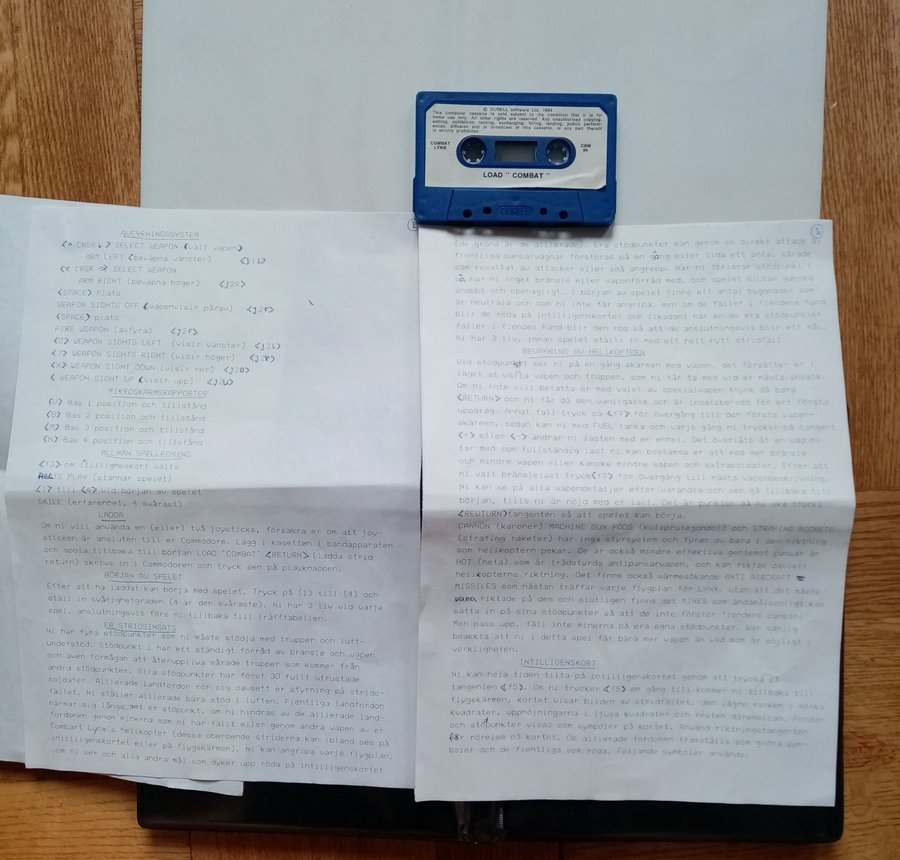 © DURELL software Ltd. 1984
This computer cassette is sold subject to the condition that it is for
home use only. All other rights are reserved. Any unauthorised copying,
editing, exhibition, renting, exchanging, hiring, lending, public perform-
ances, diffusion and or broadcast of this cassette, or any part thereof
is strictly prohibited.
COMBAT
LYNX
CBM
64
LOAD " COMBAT "
AVFYRNINGSSYSTEM
CRSR SELECT WEAPON (välj vapen)
ARM LEFT (beväpna vänster)
CRSR SELECT WEAPON
ARM RIGHT (beväpna höger) <j2R>
<SPACE> Plats
WEAPON SIGHTS OFF (vapenvisir på/av)
<SPACE> plats
FIRE WEAPON (avfyra)
<Z> WEAPON SIGHTS LEFT (visir vänster)
WEAPON SIGHTS RIGHT (visir höger)
<X> WEAPON SIGHT DOWN (visir ner)
WEAPON SIGHT UP (visir upp)
MIKROSKÄRMSRAPPORTER
Bas 1 position och tillstånd
Bas 2 position och tillstånd
Bas 3 position och tillstånd
Bas 4 position och tillstånd
ALLMÄN SPELLEDNING
om
PLAY (stannar spelet)
<1> till <4> vid början av spelet
SKILL (erfarenhet, 4 svårast)
LADDA
Om ni vill använda en (eller) två joysticks, försäkra er om att joy-
sticken är ansluten till er Commodore. Lägg i kasetten i bandapparaten
och spola tillbaka till början LOAD "COMBAT" <RETURN> (ladda strid
return) skrivs in i Commodoren och tryck sen på playknappen.
BÖRJAN AV SPELET
Efter att ha laddat kan ni börja med spelet. Tryck på (1) till (4) och
ställ in svårighetgraden (4 är den svåraste). Ni har 3 liv vid varje
spel, anslutningsvis förs ni tillbaka till träfftabellen.
ER STRIDSINSATS
Ni har fyra stödpunkter som ni måste stödja med trupper och luft-
understöd. Stödpunkt 1 har ett ständigt förråd av bränsle och vapen
och även förmågan att återuppliva sårade trupper som kommer från
andra stödpunkter. Alla stödpunkter har först 30 fullt utrustade
soldater. Allierade landfordon rör sig oavsett er styrning på strids-
fältet. Ni ställer allierade bara stöd i luften. Fientliga landfordon
närmar sig långsamt er stöpunkt, om ni hindras av de allierade land-
fordonen genom minerna som ni har fällt eller genom andra vapen av er
Combart Lynx's helikopter (dessa oberoende striderna kan ibland ses på
intilligenskortet eller på flygskärmen). Ni kan angripa varje flygplan,
om ni ser och alla andra mål som dyken upp röda på intilligenskortet
(de gröna är de allierade). Era stödpunkter kan genom en direkt attack av
fientliga pansarvagnar förstöras på en gång eller lida ett antal sårade
som resultat av attacker eller små angrepp. När ni förlorar stödpunkt 1
så har ni inget bränsle eller vapenförråd med, och spelet slutar ganska
snabbt och obehagligt. I början av spelet finns ett antal byggnader som
är neutrala och som ni får angripa, men om de faller i fiendens hand
blir de röda på intilligenskortet och likadant när en av era stödpunkter
faller i fiendes hand blir den röd så att de anslutningsvis blir ett mål.
Ni har 3 liv, innan spelet ställs in med ett helt nytt stridsfält.
BEVÄPNING AV HELIKOPTERN
Vid stödpunkt ser ni på en gång skärmen med vapen, det försätter er i
läget at välja vapen och trupper, som ni får ta med vid er nästa insats.
Om ni inte vill befatta er med valet av specialvapen tryck då bara
<RETURN> och ni får då den vanligaste och är insatsberedd för ert första
uppdrag. Annat fall tryck på <f7> för övergång till den första vapen-
skärmen, sedan kan ni med FUEL tanka och varje gång ni trycker på tangent
<+> eller <-> ändrar ni laster med en enhet. Det överlåts åt er vad ni
tar med som fullständig last ni kan bestämma er att med mer bränsle
och mindre vapen eller kanske mindre vapen och extrasoldater. Efter att
ni valt bränslelast tryck <f7> för övergång till nästa vapenbeskrivning.
Ni kan se på alla vapendetaljer efter varandra och sen gå tillbaka till
början, tills ni är nöjd med er last.
<REUTURN>tangenten så att spelet kan börja.
CANNON (kanoner) MACHINE GUN PODS (kulsprutegondol) och STRAFING ROCKETS
(strafing raketer) har inga styrsystem och fyrar av bara i den riktning
som helikoptern pekar. De är också mindre effektiva gentemot pansar än
HOT (heta) som är trådstyrda antipansarvapen, och kan riktas oavsett
helikopterns riktning. Det finns också värmesökande ANTI AIRCRAFT
MISSILES som nästan träffar varje flygplan för LYNX, utan att det måste
vara riktade på dem och slutligen finns det MINES som ändamålsenligt kan
sätta in på sina stödpunkter så att de inte förstör fiendens pansar.
Men pass upp, fäll inte minerna på era egna stödpunkter. Var vänlig
beakkta att ni i detta spel får bära mer vapen än vad som är möjligt i
verkligheten.
INTILLIGENSKORT
Ni kan hela tiden titta på intilligenskortet genom att trycka på
tangenten <f5>. Om ni trycker <f5> en gång till kommer ni tillbaka till
flygskärmen, kortet visar bilden av stridsfältet, den lägre marken i mörka
kvadrater, upphöjningarna i ljusa kvadrater och resten däremellan. Fordon
och stödpunkter visas som symboler på kortet. Använd riktningstangenter
för rörelse på kortet. De allierade fordonen framställs som gröna sym-
boler och de fientliga som röda. Följande symboler används.